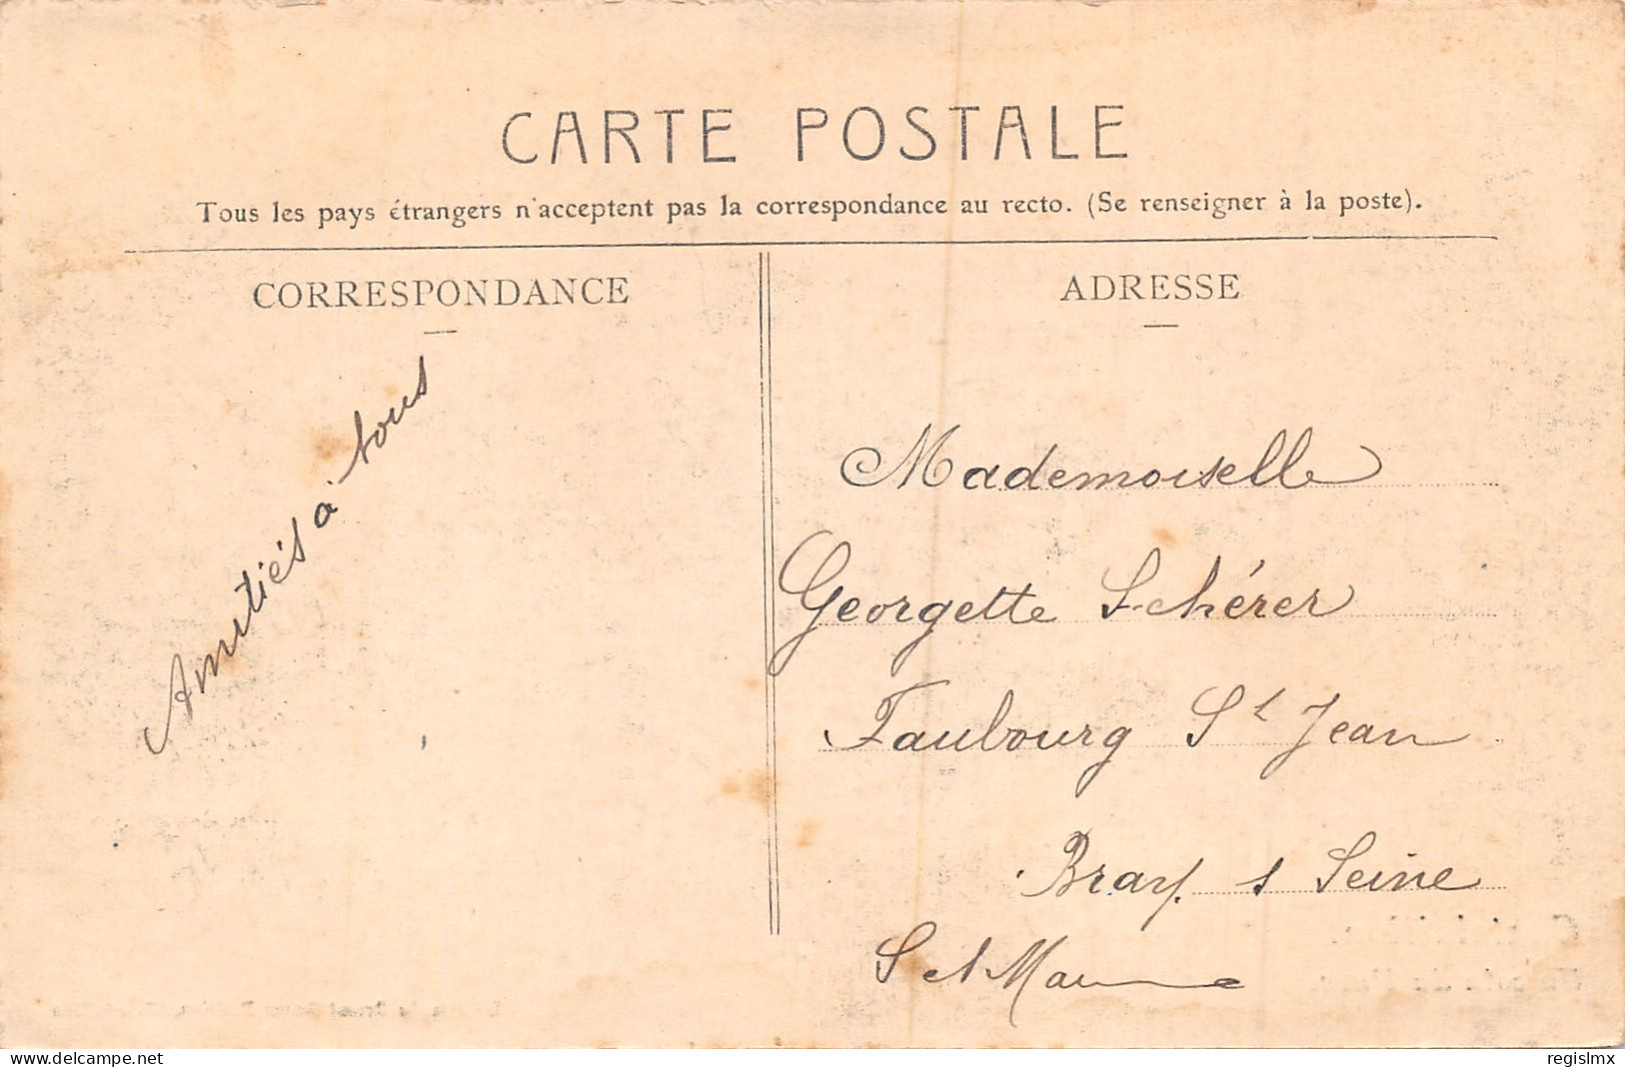 CARTE POSTALE
Tous les pays étrangers n'acceptent pas la correspondance au recto. (Se renseigner à la poste).
CORRESPONDANCE
ADRESSE
Amitiés à tous
Mademoiselle
Georgette Schérer
Faubourg St Jean
Bray s Seine
S et Marne
www.delcampe.net
regislmx